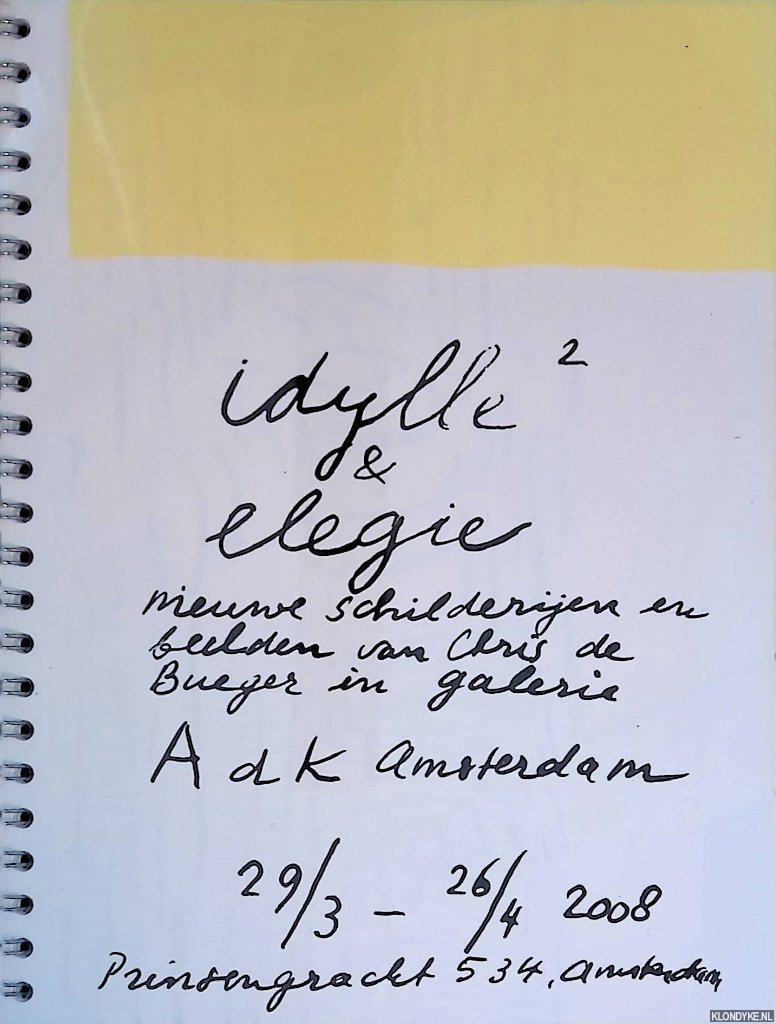 idylle ²
&
elegie
nieuwe schilderijen en
beelden van Chris de
Bueger in galerie
A d K amsterdam
29/3 – 26/4 2008
Prinsengracht 534, amsterdam
KLONDYKE.NL